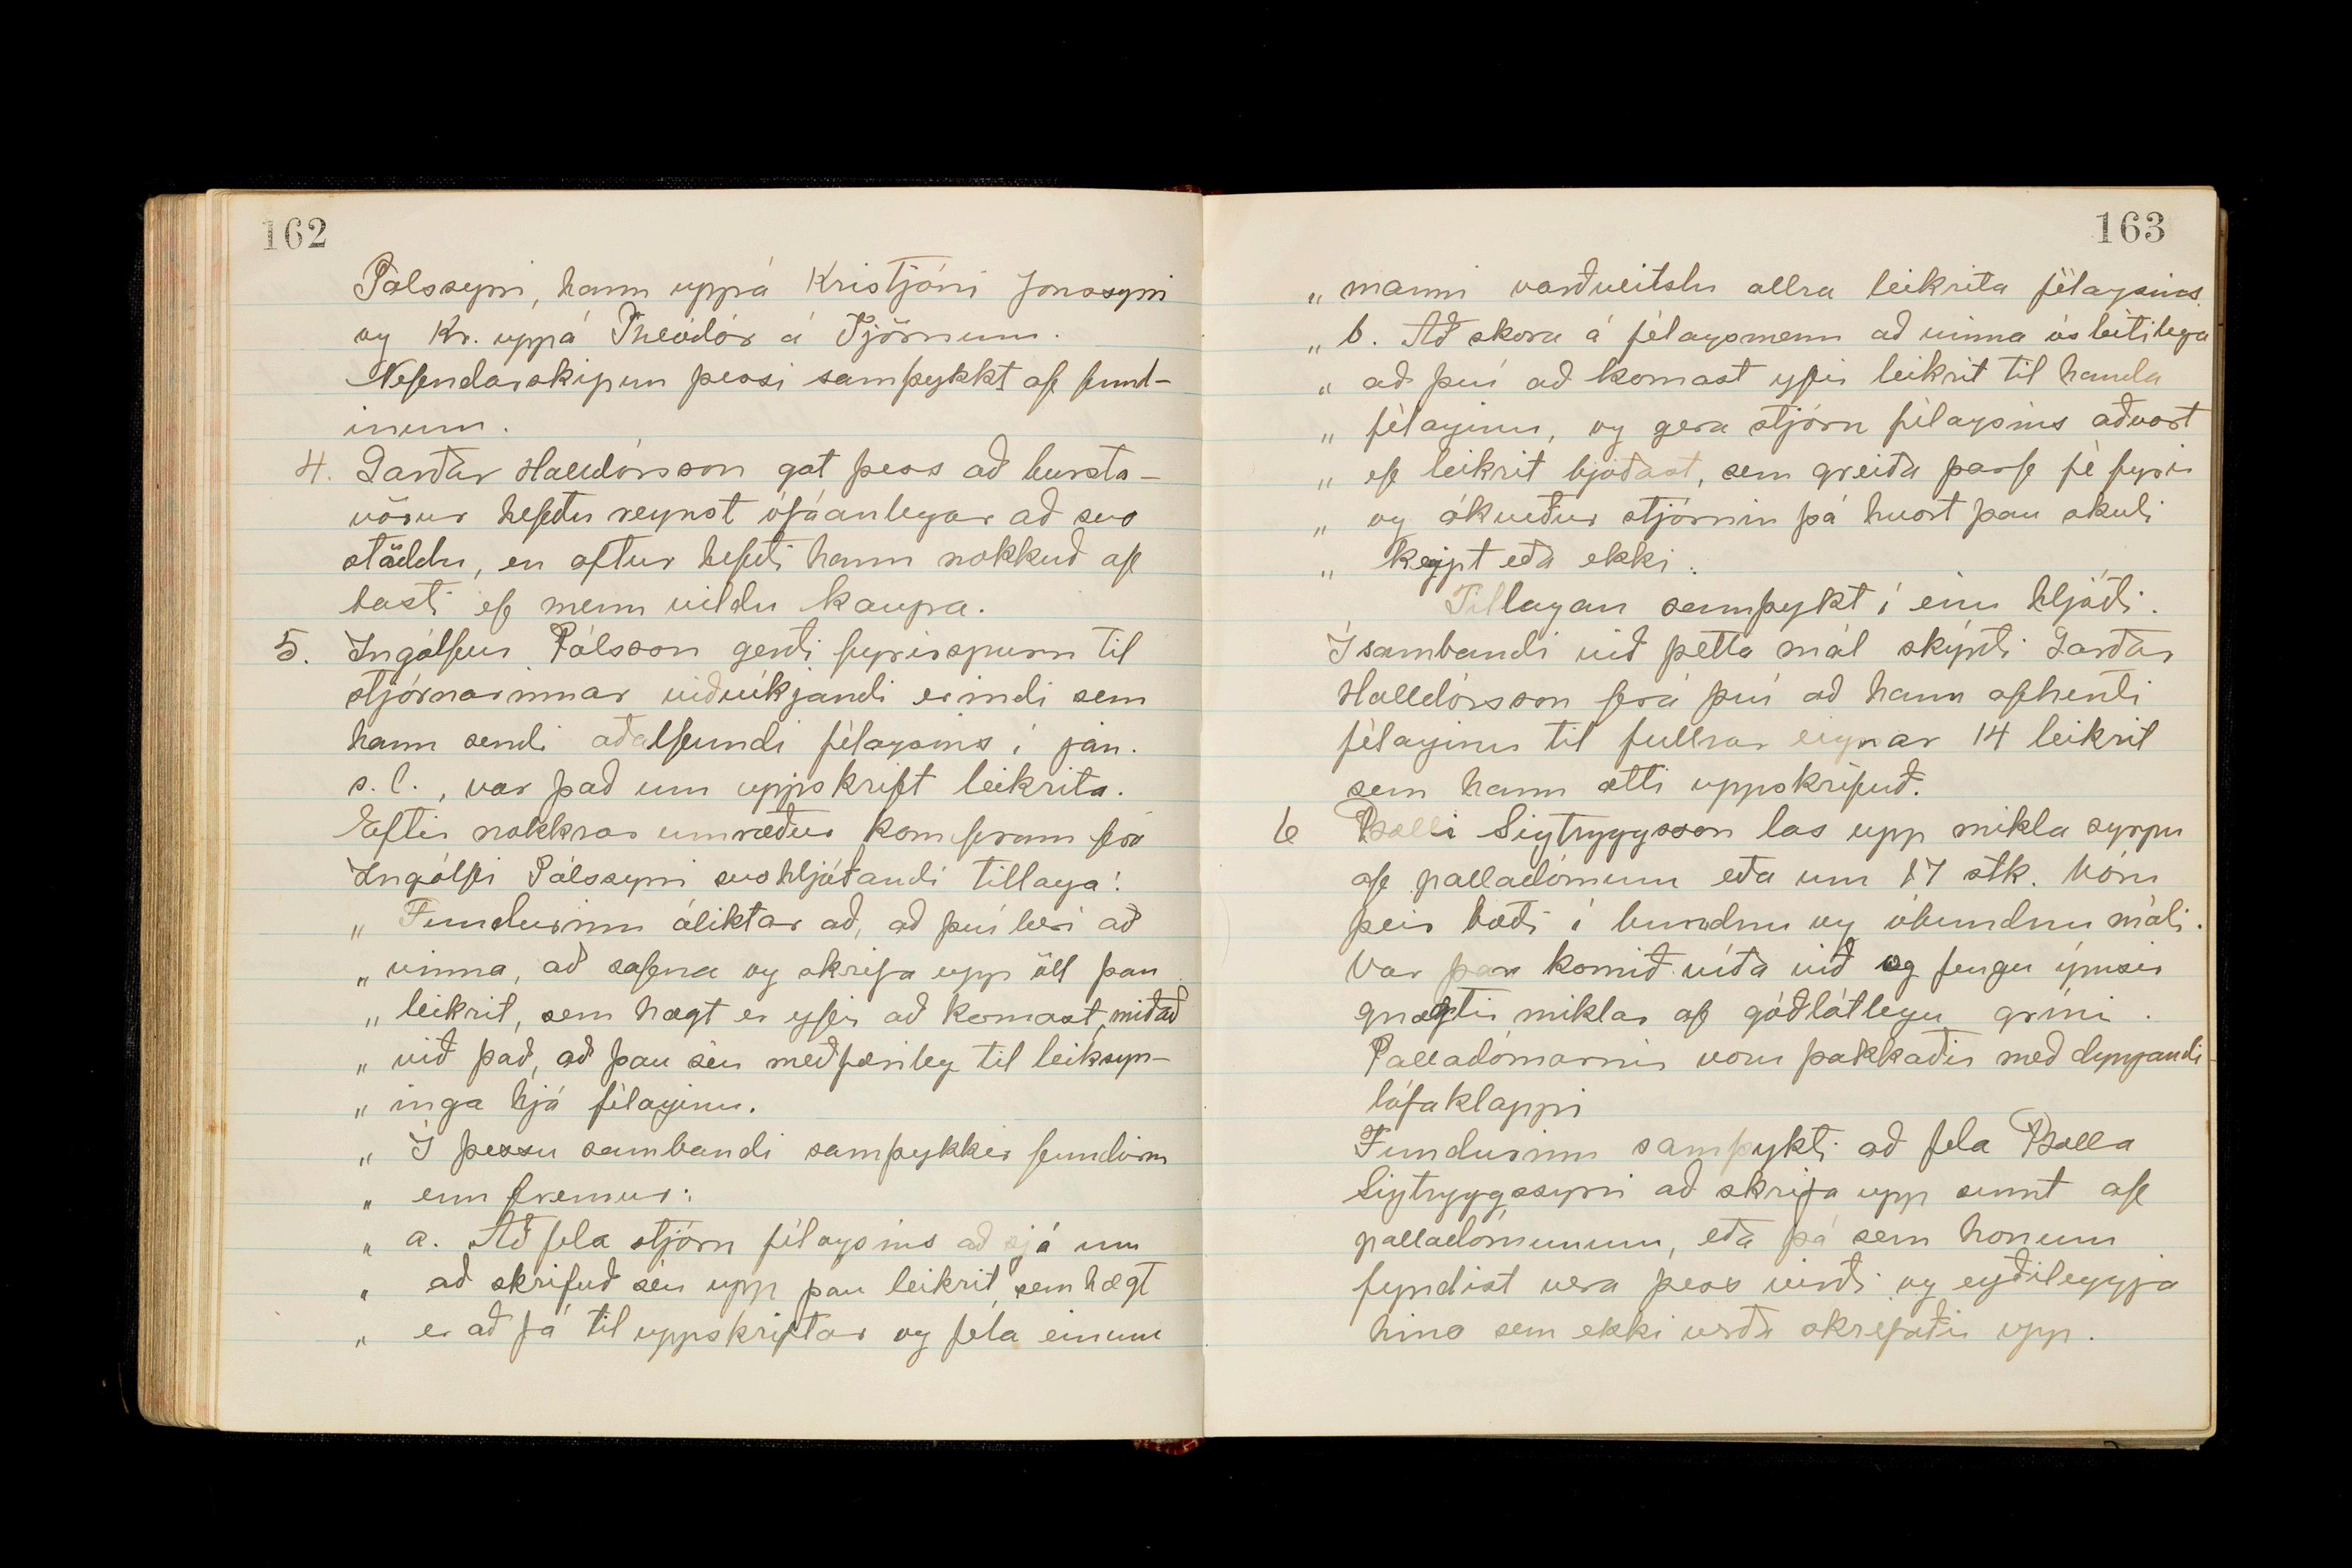 162
Pálssyni, hann uppá Kristjáni Jónssyni
og Kr. uppá Theódór á Tjörnum.
Nefndarskipun þessi samþykkt af fund-
inum.
4. Garðar Halldórsson gat þess að bursta-
vörur hefðu reynst ófáanlegar að svo
stöddu, en aftur hefði hann nokkuð af
basti ef menn vildu kaupa.
5. Ingólfur Pálsson gerði fyrirspurn til
stjórnarinnar viðvíkjandi erindi sem
hann sendi aðalfundi félagsins í jan.
s.l., var það um uppskrift leikrita.
Eftir nokkrar umræður kom fram frá
Ingólfi Pálssyni svohljóðandi tillaga:
„ Fundurinn áliktar að, að því beri að
„ vinna, að safna og skrifa upp öll þau
„ leikrit, sem hægt er yfir að komast, miðað
„ við það, að þau séu meðfærileg til leiksýn-
„ inga hjá félaginu.
„ Í þessu sambandi samþykkir fundurinn
„ enn fremur:
„ a. Að fela stjórn félagsins að sjá um
„ að skrifuð séu upp þau leikrit, sem hægt
„ er að fá til uppskriftar og fela einum
163
„ manni varðveitslu allra leikrita félagsins.
„ b. Að skora á félagsmenn að vinna ósleitilega
„ að því að komast yfir leikrit til handa
„ félaginu, og gera stjórn félagsins aðvart
„ ef leikrit bjóðast, sem greiða þarf fé fyrir
„ og ákveður stjórnin þá hvort þau skuli
„ keypt eða ekki.
Tillagan samþykt í einu hljóði.
Í sambandi við þetta mál skýrði Garðar
Halldórsson frá því að hann afhenti
félaginu til fullrar eignar 14 leikrit
sem hann ætti uppskrifuð.
6 Balli Sigtryggsson las upp mikla syrpu
af palladómum eða um 17 stk. Vóru
þeir bæði í bundnu og óbundnu máli.
Var þar komið víða við og fengu ýmsir
gnægtir miklar af góðlátlegu gríni.
Palladómarnir voru þakkaðir með dynjandi
lófaklappi
Fundurinn samþykti að fela Balla
Sigtryggssyni að skrifa upp sumt af
palladómunum, eða þá sem honum
fyndist vera þess virði og eyðileggja
hina sem ekki verða skrifaðir upp.